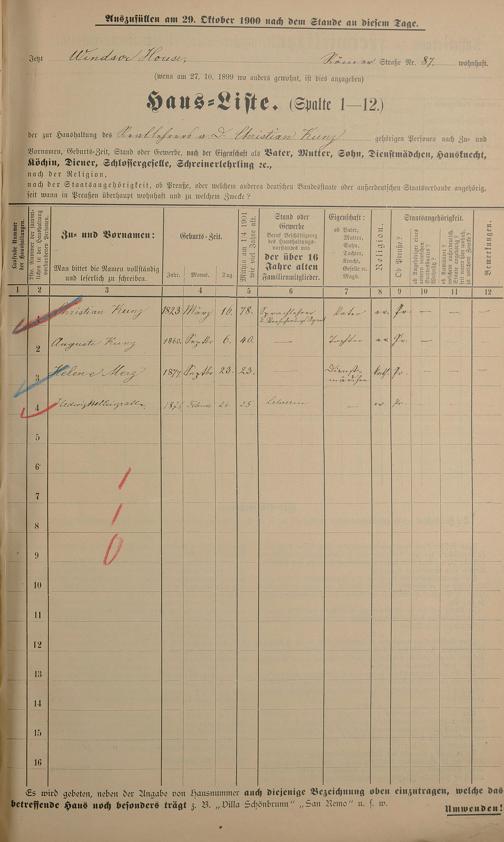 Auszufüllen am 29. Oktober 1900 nach dem Stande an diesem Tage.
Jetzt Windsor House, Römer Straße Nr. 87. wohnhaft.
(wenn am 27. 10. 1899 wo anders gewohnt, ist dies anzugeben)
Haus-Liste. (Spalte 1—12.)
der zur Haushaltung des Reallehrers a. D. Christian Kunz gehörigen Personen nach Zu- und
Vornamen, Geburts-Zeit, Stand oder Gewerbe, nach der Eigenschaft als Vater, Mutter, Sohn, Dienstmädchen, Hausknecht,
Köchin, Diener, Schlossergeselle, Schreinerlehrling ꝛc.,
nach der Religion,
nach der Staatsangehörigkeit, ob Preuße, oder welchem anderen deutschen Bundesstaate oder außerdeutschen Staatsverbande angehörig,
seit wann in Preußen überhaupt wohnhaft und zu welchem Zwecke?
Laufende Nummer der Haushaltungen.
Zu- und Vornamen:
Man bittet die Namen vollständig und leserlich zu schreiben.
Geburts-Zeit.
Jahr. Monat. Tag.
Mithin am 1|4 1901 wie viel Jahre alt.
Stand oder Gewerbe
der über 16 Jahre alten Familienmitglieder.
Eigenschaft:
ob Vater, Mutter, Sohn, Tochter, Knecht, Geselle o. Magd.
Religion.
Staatsangehörigkeit.
Ob Preuße?
Bemerkungen.
1 2 3 4 5 6 7 8 9 10 11 12
1 Christian Kunz 1823 März 16. 78. Vater ev. Pr.
2 Auguste Kunz 1860. Septbr 6. 40. — Tochter ev. Pr.
3 Helene Merz 1877. Septbr 23. 23. — Dienstmädchen kath. Pr.
4 Hedwig 25 Lehrerin — ev. Pr.
5
6
7
8
9
10
11
12
13
14
15
16
1
1
0
Es wird gebeten, neben der Angabe von Hausnummer auch diejenige Bezeichnung oben einzutragen, welche das
betreffende Haus noch besonders trägt z. B. „Villa Schönbrunn“ „San Remo“ u. s. w.
Umwenden!